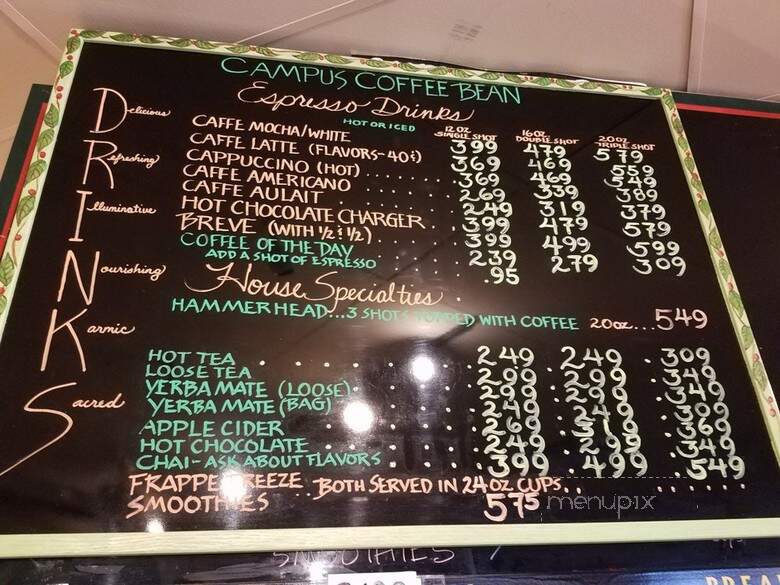 CAMPUS COFFEE BEAN
Espresso Drinks
HOT OR ICED
12 OZ. SINGLE SHOT
16 OZ. DOUBLE SHOT
20 OZ. TRIPLE SHOT
Delicious
Refreshing
Illuminative
Nourishing
Karmic
Sacred
CAFFE MOCHA/WHITE 399 479 579
CAFFE LATTE (FLAVORS-40¢) 369 469 559
CAPPUCCINO (HOT) 369 469 549
CAFFE AMERICANO 269 339 389
CAFFE AULAIT 249 319 379
HOT CHOCOLATE CHARGER 399 479 579
BREVE (WITH 1/2 & 1/2) 399 499 599
COFFEE OF THE DAY 239 279 309
ADD A SHOT OF ESPRESSO .95
House Specialties
HAMMERHEAD...3 SHOTS TOPPED WITH COFFEE 20oz...549
HOT TEA 249 249 309
LOOSE TEA 299 299 349
YERBA MATE (LOOSE) 299 299 349
YERBA MATE (BAG) 249 249 309
APPLE CIDER 269 369
HOT CHOCOLATE 249 299 349
CHAI-ASK ABOUT FLAVORS 399 499 549
FRAPPE FREEZE BOTH SERVED IN 24 OZ CUPS
SMOOTHIES 575
menupix
SMOOTHIES